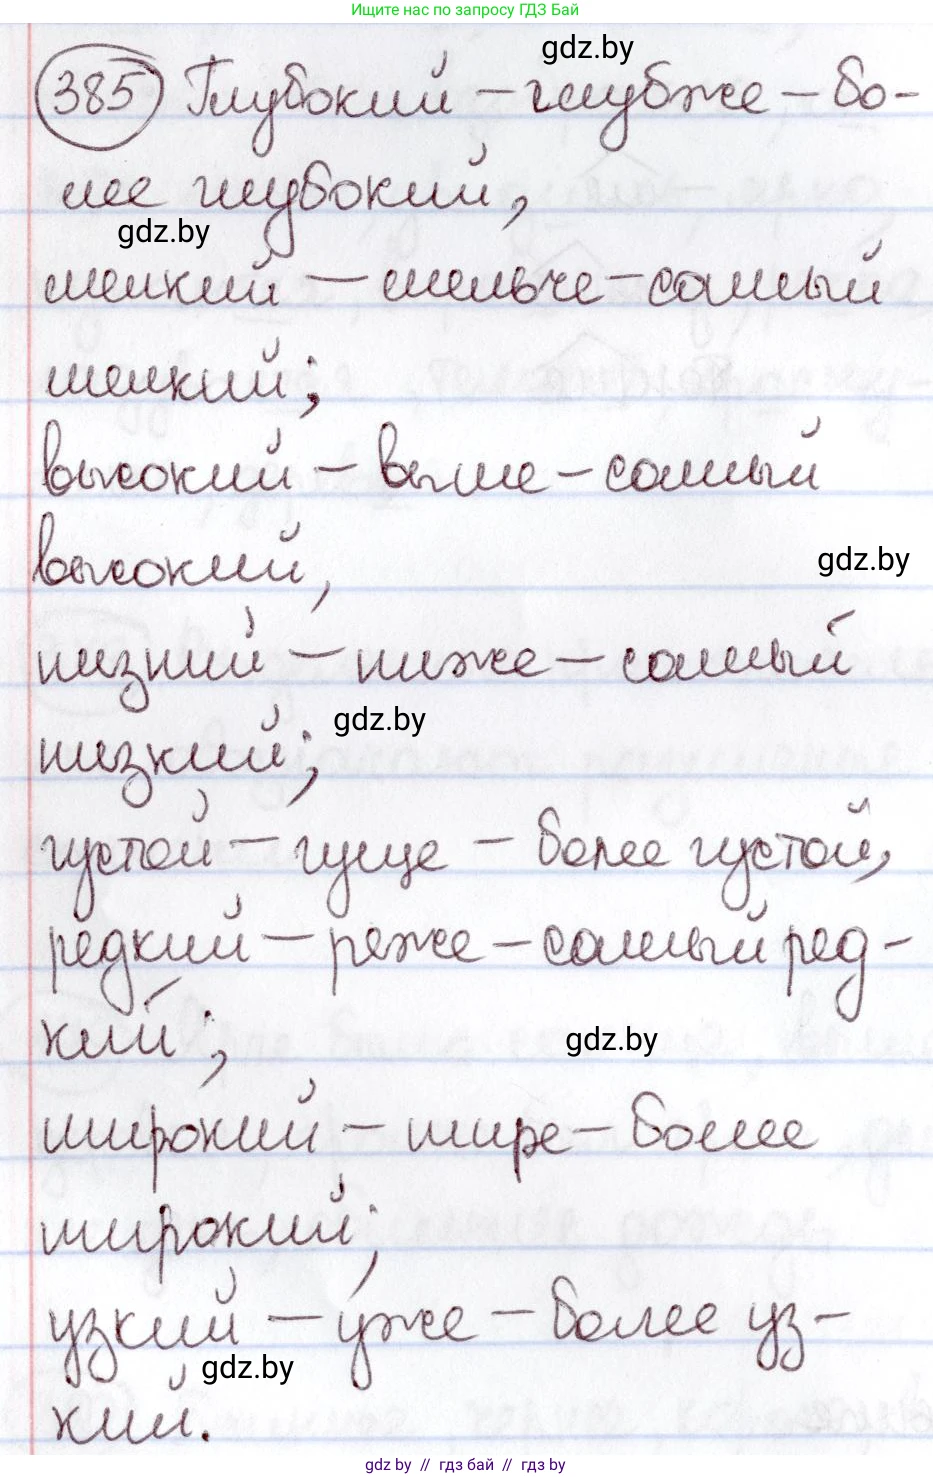 Ищите нас по запросу ГДЗ Бай
gdz.by
385 Глубокий – глубже – бо-
лее глубокий,
gdz.by
мелкий – мельче – самый
мелкий;
высокий – выше – самый
высокий,
gdz.by
низкий – ниже – самый
gdz.by
низкий;
густой – гуще – более густой,
редкий – реже – самый ред-
кий;
gdz.by
широкий – шире – более
широкий;
узкий – у́же – более уз-
gdz.by
кий.
gdz.by // гдз бай // гдз by